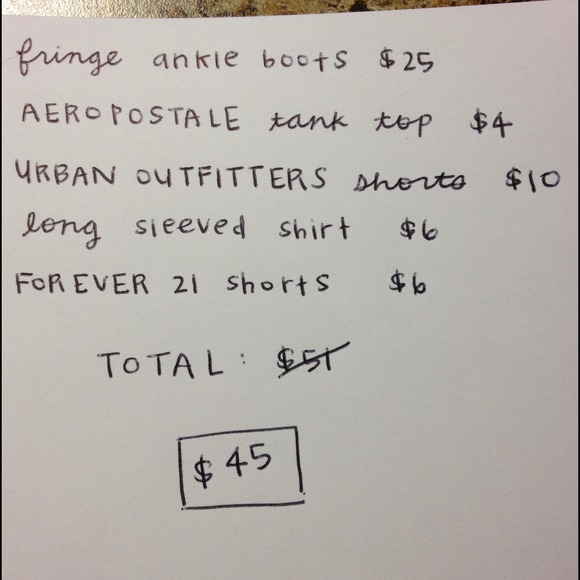 fringe ankle boots $25
AEROPOSTALE tank top $4
URBAN OUTFITTERS shorts $10
long sleeved shirt $6
FOREVER 21 shorts $6
TOTAL: $51
$45